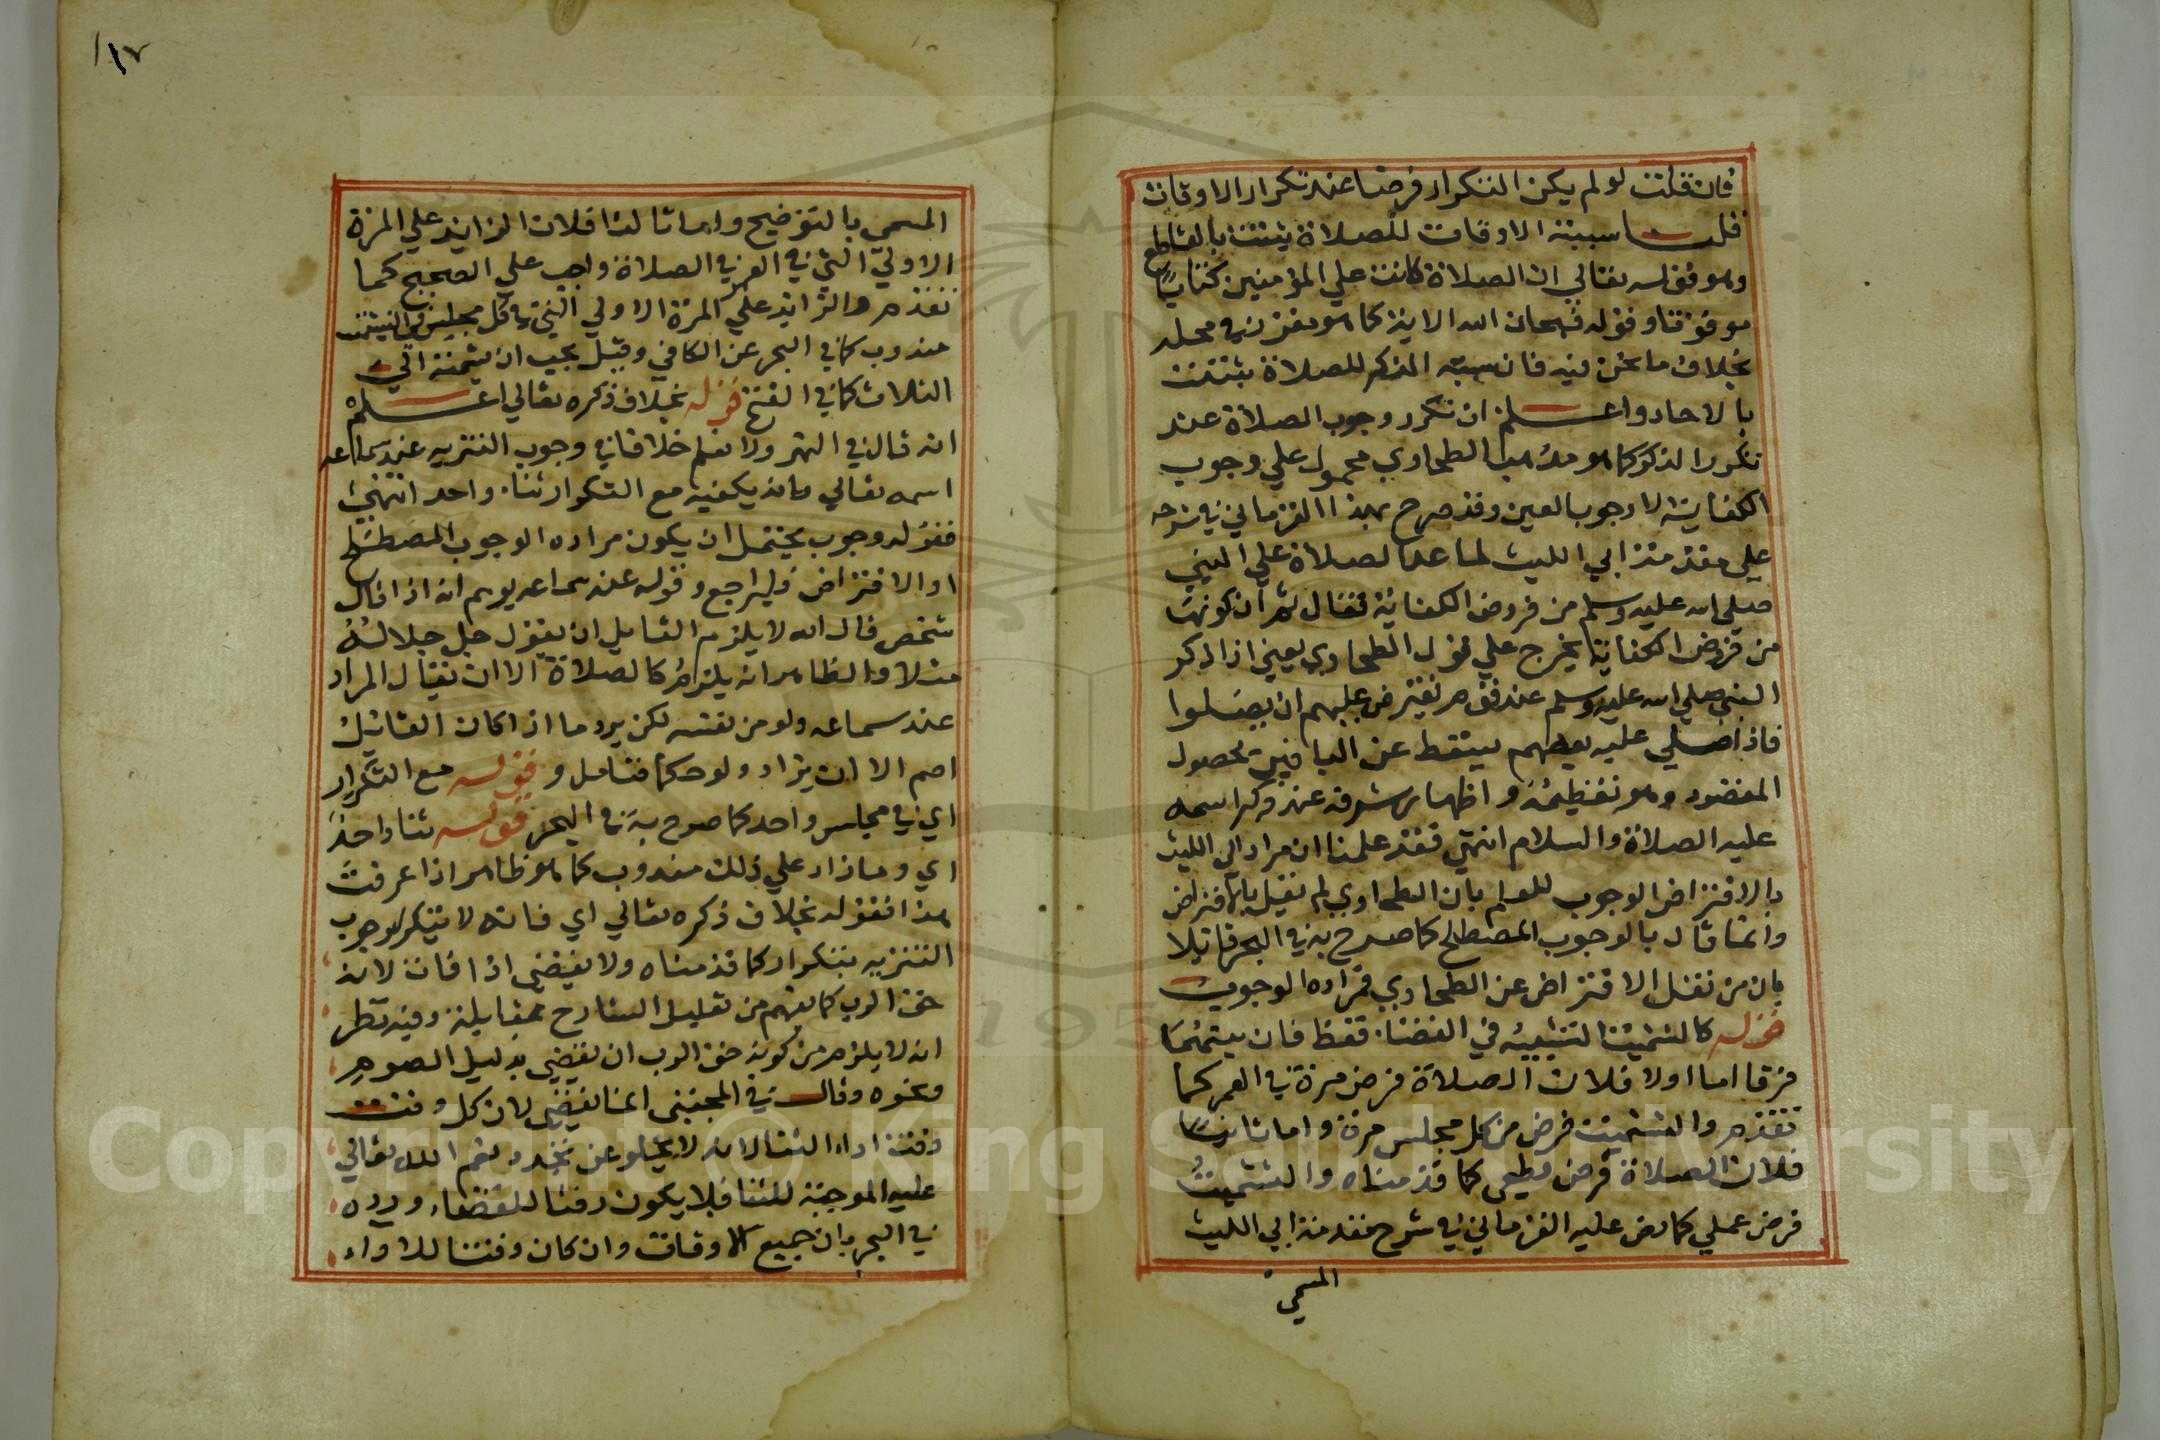 فان قلت لو لم يكن التكرار فرضا عند تكرار الاوقات
قلت سببية الاوقات للصلاة يثبت بالقاطع
وهو قوله تعالي ان الصلاة كانت علي المؤمنين كتابا
موقوتا وقوله فسبحان الله الاية كما هو مقرر في محله
بخلاف ما نحن فيه فان سببية الذكر للصلاة يثبت
بالاحاد واعلم ان تكرر وجوب الصلاة عند
تكرر الذكر كما هو مذهب الطحاوي محمول علي وجوب
الكفاية لا وجوب العين وقد صرح بهذا القرماني في شرحه
علي مقدمة ابي الليث لما عد الصلاة علي النبي
صلي الله عليه وسلم من فروض الكفاية فقال ثم ان كونها
من فروض الكفاية يخرج علي قول الطحاوي يعني اذا ذكر
النبي صلي الله عليه وسلم عند قوم يفترض عليهم ان يصلوا
فاذا صلي عليه بعضهم يسقط عن الباقين لحصول
المقصود وهو تعظيمه واظهار شرفه عند ذكر اسمه
عليه الصلاة والسلام انتهي فقد علمنا ان مراد ابي الليث
بالافتراض الوجوب للعلم بان الطحاوي لم يقل بالافتراض
وانما قال بالوجوب المصطلح كما صرح به في البحر قائلا
بان من نقل الافتراض عن الطحاوي فمراده الوجوب
قوله كالتشميت التشبيه في القضا فقط فان بينهما
فرقا اما اولا فلان الصلاة فرض مرة في العمر كما
تقدم والتشميت فرض من كل مجلس مرة واما ثانيا
فلان الصلاة فرض قطعي كما قدمناه والتشميت
فرض عملي كما نص عليه القرماني في شرح مقدمة ابي الليث
المسمي
١١٧
المسمي بالتوضيح واما ثالثا فلان الزايد علي المرة
الاولي التي في العمر في الصلاة واجب علي الصحيح كما
تقدم والزايد علي المرة الاولي التي في كل مجلس في التشميت
مندوب كما في البحر عن الكافي وقيل يجب ان يشمته الي
الثلاث كما في الفتح قوله بخلاف ذكره تعالي اعلم
انه قال في النهر ولا نعلم خلافا في وجوب التنزيه عند سماعه
اسمه تعالي وانه يكفيه مع التكرار ثناء واحد انتهي
فقوله وجوب يحتمل ان يكون مراده الوجوب المصطلح
او الافتراض فليراجع وقوله عند سماعه يوهم انه اذا قال
شخص قال الله لا يلزم القايل ان يقول جل جلاله
مثلا والظاهر انه يلزمه كالصلاة الا ان يقال المراد
عند سماعه ولو من نفسه لكن يرد ما اذا كان القائل
اصم الا ان يزاد ولو حكما فتامل و قوله مع التكرار
اي في مجلس واحد كما صرح به في البحر قوله ثنا واحد
اي وما زاد علي ذلك مندوب كما هو ظاهر اذا عرفت
هذا فقوله بخلاف ذكره تعالي اي فانه لا يتكرر وجوب
التنزيه بتكراره كما قدمناه ولا يقضي اذا فات لانه
حق الرب كما يفهم من تعليل الشارح بمقابلة وفيه نظر
انه لا يلزم من كونه حق الرب ان يقضي بدليل الصوم
ونحوه وقال في المجتبي انما لا يقضي لان كل وقت
وقت اداء الثنا لانه لا يخلو عن تجدد نعم الله تعالي
عليه الموجبة للثنا فلا يكون وقتا للقضاء ورده
في البحر بان جميع الاوقات وان كان وقتا للاداء